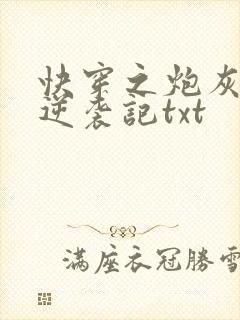 快穿之炮灰
逆袭記txt
满座衣冠勝雪